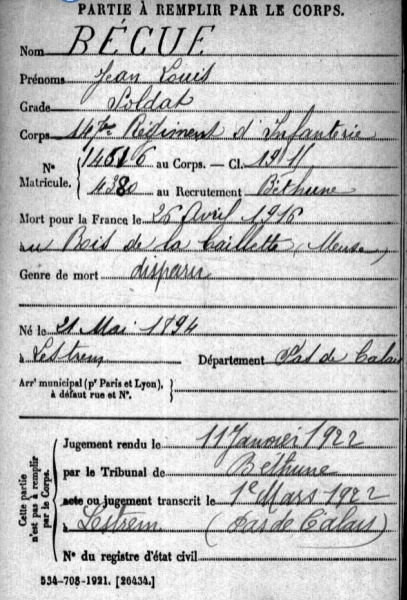 PARTIE À REMPLIR PAR LE CORPS.
Nom BÉCUE
Prénoms Jean Louis
Grade Soldat
Corps Régiment d'Infanterie
N° Matricule. au Corps. — Cl. 1915
4380 au Recrutement Béthune
Mort pour la France le 26 Avril 1916
au Bois de la Caillette (Meuse)
Genre de mort disparu
Né le 21 Mai 1894
à Lestrem Département Pas de Calais
Arr¹ municipal (p' Paris et Lyon), à défaut rue et N°.
Cette partie n'est pas à remplir par le Corps.
Jugement rendu le 11 Janvier 1922
par le Tribunal de Béthune
acte ou jugement transcrit le 1e Mars 1922
à Lestrem (Pas de Calais)
N° du registre d'état civil
534-708-1921. [26434.]